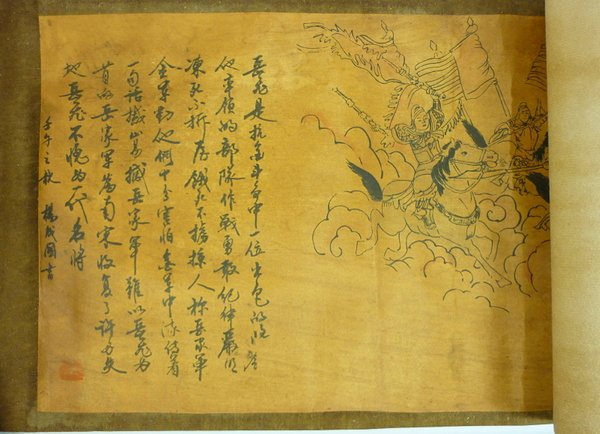 岳飛是抗金斗争中一位出色的
他率领的部隊作戰勇敢纪律嚴明
凍死不折屋餓死不擄掠人称岳家軍
金軍對他們十分害怕金軍中流传着
一句话撼山易撼岳家軍難以岳飛为
首的岳家軍為南宋收复了许多失
地岳飛不愧为一代名将
壬午之秋 楊成国書